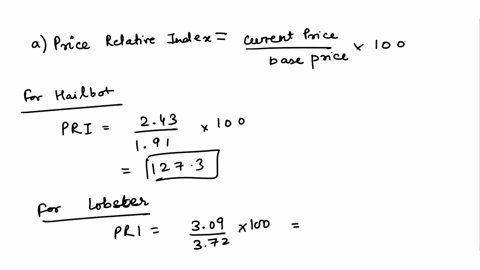 a) Price Relative Index = current Price / base price × 100
for Hailbot
PRI = 2.43 / 1.91 × 100
= 127.3
for Lobster
PRI = 3.09 / 3.72 × 100 =